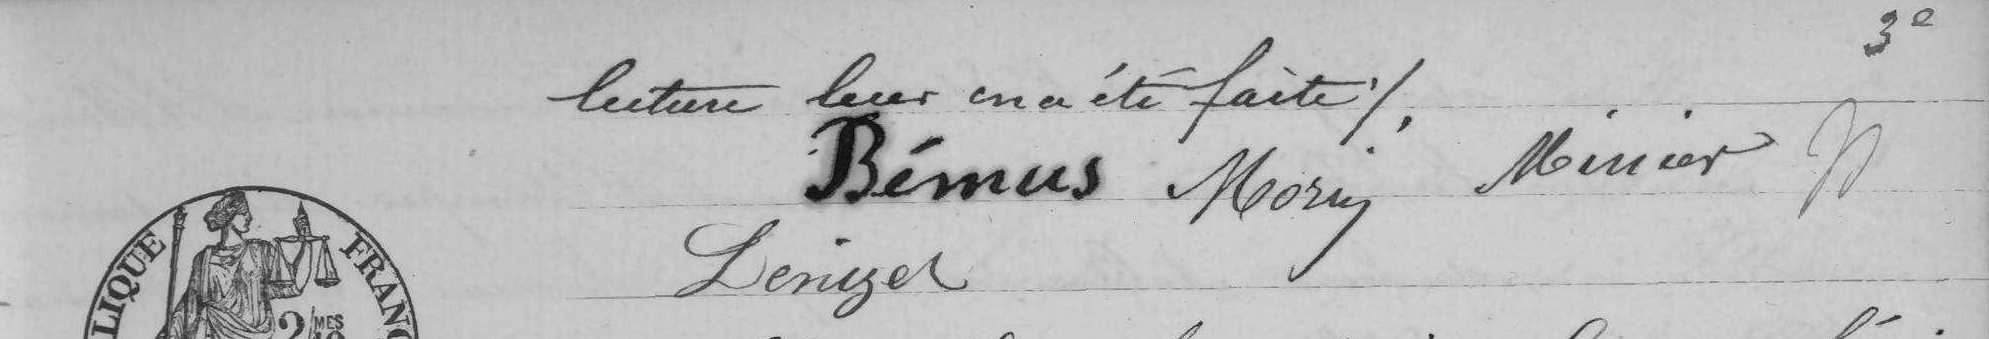 3e
lecture leur en a été faite ./.
Bémus Morin Minier
Lenizet
LIQUE FRANÇ
2/MES